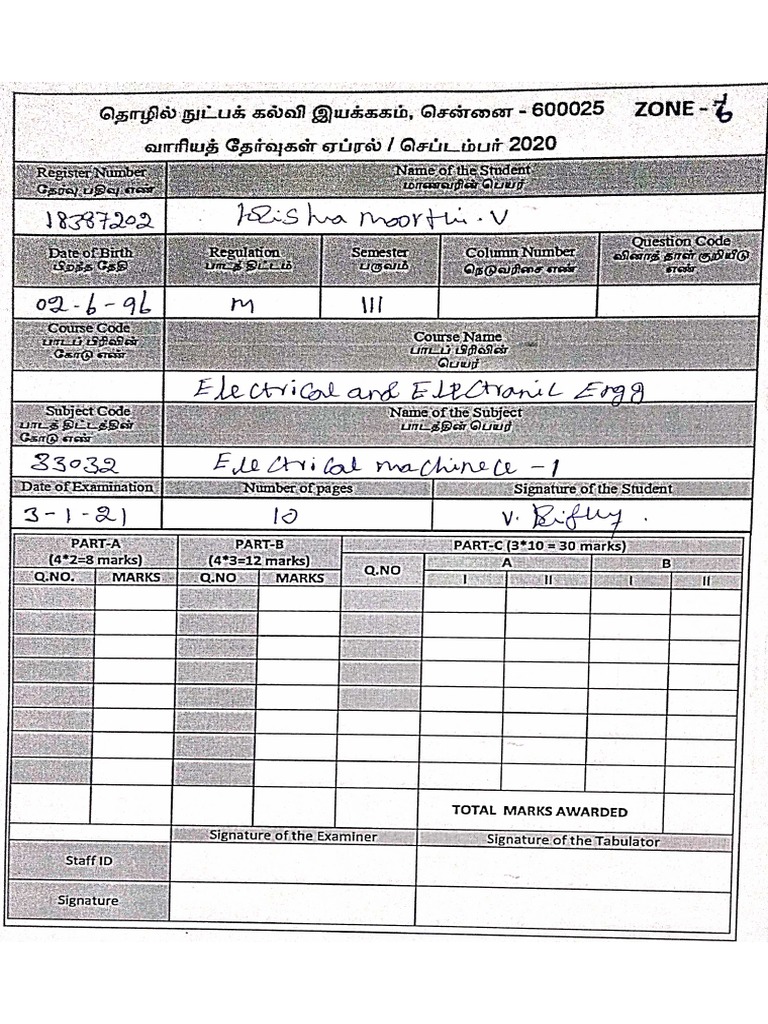 தொழில் நுட்பக் கல்வி இயக்ககம், சென்னை - 600025 ZONE - 6
வாரியத் தேர்வுகள் ஏப்ரல் / செப்டம்பர் 2020
Register Number Name of the Student
தேர்வு பதிவு எண் மாணவரின் பெயர்
18387202 Krishna moorthi. V
Date of Birth Regulation Semester Column Number Question Code
பிறந்த தேதி பாடத் திட்டம் பருவம் நெடுவரிசை எண் வினாத் தாள் குறியீடு எண்
02-6-96 m III
Course Code Course Name
பாடப் பிரிவின் பாடப் பிரிவின்
கோடு எண் பெயர்
Electrical and Electranic Engg
Subject Code Name of the Subject
பாடத் திட்டத்தின் பாடத்தின் பெயர்
கோடு எண்
33032 Electrical machinece -1
Date of Examination Number of pages Signature of the Student
3-1-21 10 V.
PART-A PART-B PART-C (3*10 = 30 marks)
(4*2=8 marks) (4*3=12 marks) Q.NO A B
Q.NO. MARKS Q.NO MARKS I II I II
TOTAL MARKS AWARDED
Signature of the Examiner Signature of the Tabulator
Staff ID
Signature